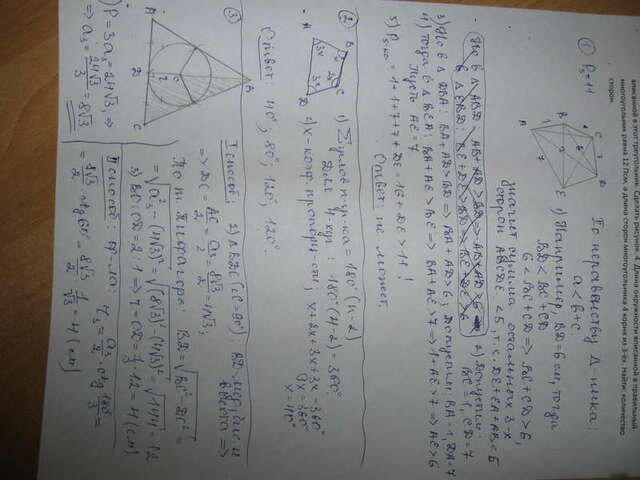 вписанной в этот треугольник. Сделать рисунок. 4. Длина окружности, вписанной в правильный
многоугольник равна 12 Псм, а длина стороны многоугольника 4 корня из 3-ех. Найти количество
сторон.
① P₅=11
По неравенству Δ-ника:
a < b+c
1) Например, BD=6см, тогда
BD < BC+CD
6 < BC+CD => BC+CD > 6,
значит сумма остальных 3-х
сторон ABCDE < 5, т.е. DE+EA+AB < 5
2) Допустим:
BC=1, CD=7
3) Но в Δ DBA: BA+AD > BD => BA+AD > 6, Допустим: BA=1, DA=7
4) Тогда в Δ BEA: BA+AE > BE => BA+AE > 7 => 1+AE > 7 => AE > 6
Пусть AE=7
5) P₅-ка = 1+1+7+7+DE = 16+DE > 11!
Ответ: не может.
② 1) Σ углов n-уг-ка = 180°(n-2)
Для 4-уг: 180°(4-2) = 360°
2) x-коэф. пропорц-сти; x+2x+3x+3x = 360°
9x = 360°
x = 40°
Ответ: 40°; 80°; 120°; 120°.
③ 1) P = 3a₃ = 24√3 =>
=> a₃ = 24√3/3 = 8√3
I способ: 2) Δ BDC (∠C=90°): BD-мед, бис. и высота =>
=> DC = AC/2 = a₃/2 = 8√3/2 = 4√3;
По т. Пифагора: BD = √BC²-DC² =
= √a₃²-(4√3)² = √(8√3)²-(4√3)² = √144 = 12
3) BO:OD = 2:1 => r = OD = 1/3 · 12 = 4 (см)
II способ: ф-ла: r₃ = a₃/2 · ctg 180°/3 =
= 8√3/2 · ctg 60° = 8√3/2 · 1/√3 = 4 (см)